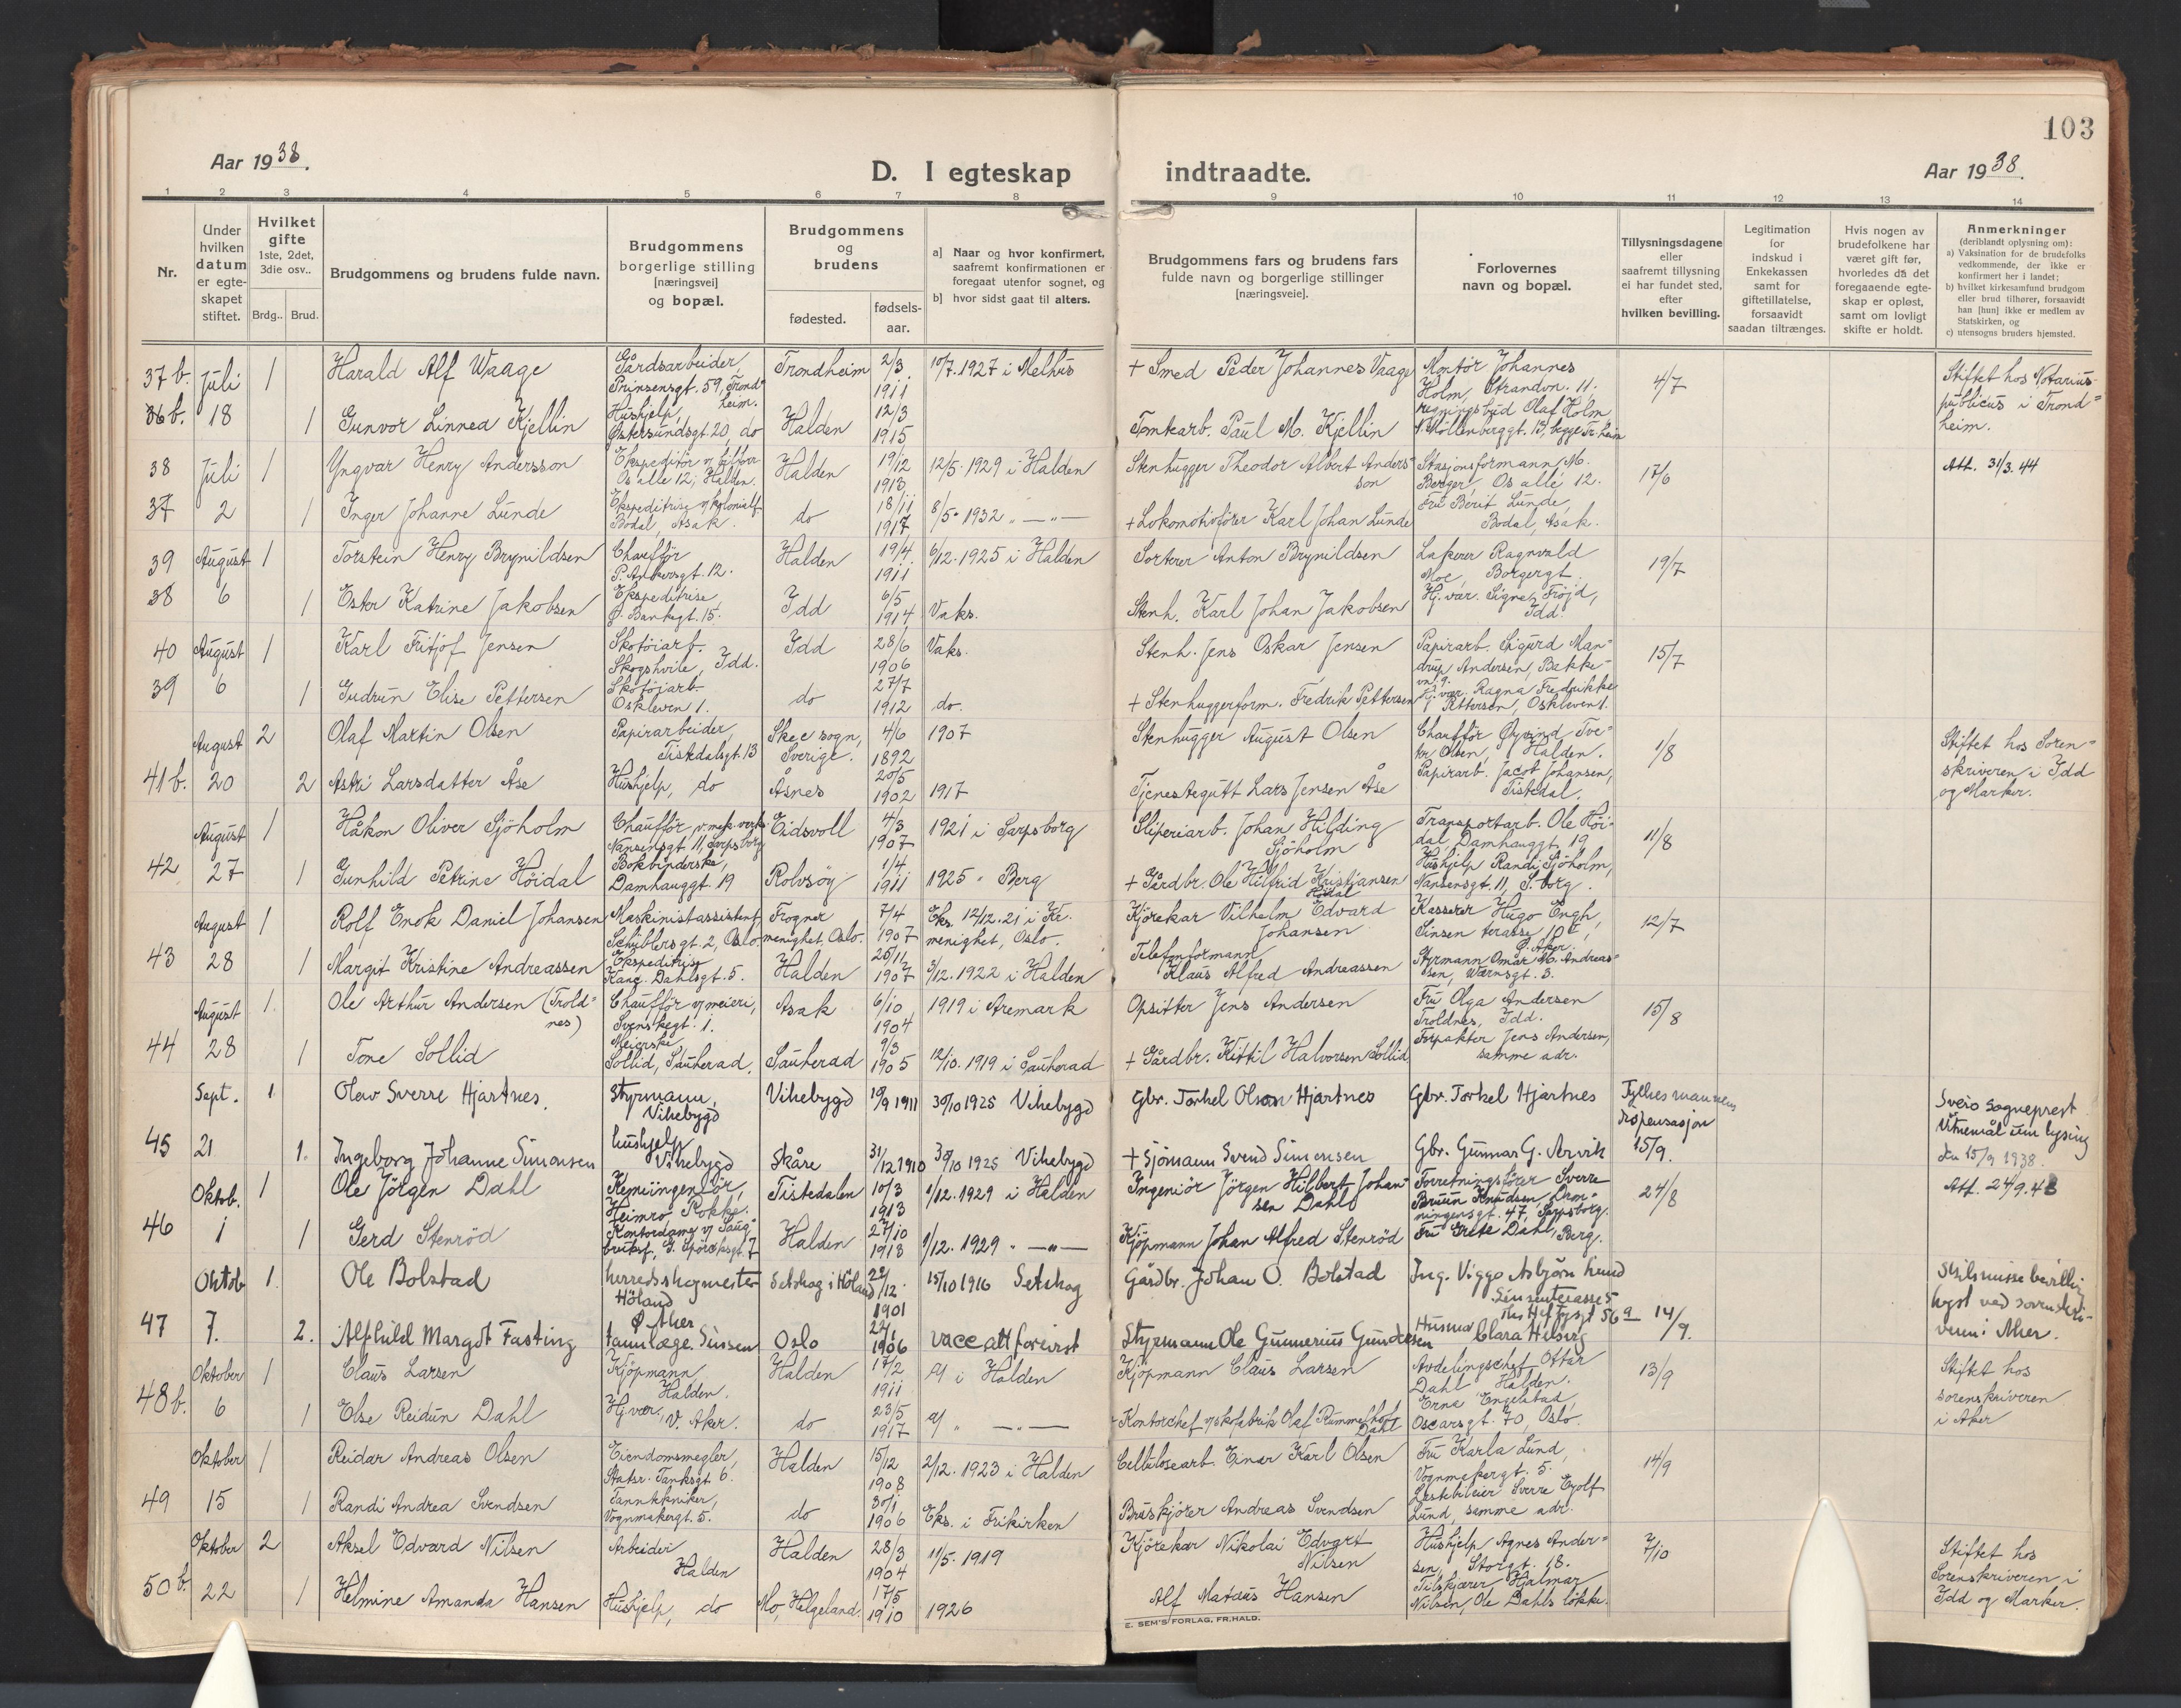 103
Aar 1938.
D. I egteskap indtraadte.
Aar 1938.
1 2 3 4 5 6 7 8 9 10 11 12 13 14
Nr.
Under hvilken datum er egteskapet stiftet.
Hvilket gifte 1ste, 2det, 3die osv..
Brdg.. Brud.
Brudgommens og brudens fulde navn.
Brudgommens borgerlige stilling [næringsvei] og bopæl.
Brudgommens og brudens
fødested.
fødsels-aar.
a] Naar og hvor konfirmert, saafremt konfirmationen er foregaat utenfor sognet, og
b] hvor sidst gaat til alters.
Brudgommens fars og brudens fars fulde navn og borgerlige stillinger [næringsveie].
Forlovernes navn og bopæl.
Tillysningsdagene eller saafremt tillysning ei har fundet sted, efter hvilken bevilling.
Legitimation for indskud i Enkekassen samt for giftetillatelse, forsaavidt saadan tiltrænges.
Hvis nogen av brudefolkene har været gift før, hvorledes då det foregaaende egteskap er opløst, samt om lovligt skifte er holdt.
Anmerkninger (deriblandt oplysning om):
a) Vaksination for de brudefolks vedkommende, der ikke er konfirmert her i landet;
b) hvilket kirkesamfund brudgom eller brud tilhører, forsaavidt han [hun] ikke er medlem av Statskirken, og
c) utensogns bruders hjemsted.
37 b. Juli 1 Harald Alf Waage Gårdsarbeider, Prinsensgt. 59, Trondheim. Trondheim 2/3 1911 10/7. 1927 i Melhus + Smed Peder Johannes Vaage Montør Johannes Holm, Strandvn. 11. 4/7 Stiftet hos Notarius publicus i Trondheim.
36 b. 18 1 Gunvor Linnea Kjellin Hushjelp, Østersundsgt. 20, do Halden 12/3 1915 Tomtearb. Paul M. Kjellin Olaf Holm, Møllenberggt. 13, begge Tr.heim
38 Juli 1 Yngvar Henry Andersson Os alle 12, Halden. Halden 19/12 1913 12/5. 1929 i Halden Stenhugger Theodor Albert Andersson Stasjonsformann M. Berger, Os alle 12. 17/6 Att. 31/3. 44
37 2 1 Inger Johanne Lunde Ekspeditrise v/ kolonialf. Bodal, Asak. do 18/11 1917 8/5. 1932 " — " — + Lokomotivfører Karl Johan Lunde Fru Berit Lunde, Bodal, Asak.
39 August 1 Torstein Henry Brynildsen Chauffør P. Ankersgt. 12. Halden 19/4 1911 6/12. 1925 i Halden Sorterer Anton Brynildsen Lakerer Ragnvald Moe, Borgergt. 19/7
38 6 1 Ester Katrine Jakobsen Ekspeditrise, Ø. Bankgt. 15. Idd 6/5 1914 Vaks. Stenh. Karl Johan Jakobsen Hj. vær. Signe Frøjd, Idd.
40 August 1 Karl Fritjof Jensen Skotøiarb. Skogshvile, Idd. Idd 28/6 1906 Vaks. Stenh. Jens Oskar Jensen Papirarb. Sigurd Mandrup Andersen, Bakkevn. 9. 15/7
39 6 1 Gudrun Elise Pettersen Skotøjarb. Oskleven 1. do 27/7 1912 do. + Stenhuggerform. Fredrik Pettersen Hj. vær. Ragna Fredrikke Pettersen, Oskleven 1.
August 2 Olaf Martin Olsen Papirarbeider, Tistedalsgt. 13 Skee sogn, Sverige. 4/6 1892 1907 Stenhugger August Olsen Chauffør Øyvind Tveter Olsen, Halden. 1/8 Stiftet hos Sorenskriveren i Idd og Marker.
41 b. 20 2 Astri Larsdatter Åse Hushjelp, do Åsnes 20/5 1902 1917 Tjenestegutt Lars Jensen Åse Papirarb. Jacob Johansen, Tistedal.
August 1 Håkon Oliver Sjöholm Chauffør v. mek. verks. Nansensgt. 11, Sarpsborg Eidsvoll 4/3 1907 1921 i Sarpsborg Sliperiarb. Johan Hilding Sjöholm Transportarb. Ole Höidal, Damhauggt. 19 11/8
42 27 1 Gunhild Petrine Höidal Bokbinderske, Damhauggt. 19 Rolvsøy 1/4 1911 1925 " Berg + Gårdbr. Ole Hilfrid Kristiansen Höidal Hushjelp Randi Sjöholm, Nansensgt. 11, S.borg.
August 1 Rolf Enok Daniel Johansen Maskinistassistent Schüblersgt. 2, Oslo. Frogner menighet, Oslo. 7/4 1907 Eks. 12/12. 21 i Fr. menighet, Oslo. Kjørekar Vilhelm Edvard Johansen Kasserer Hugo Engh, Sinsen terasse, Ø. Aker. 12/7
43 28 1 Margit Kristine Andreassen Ekspeditrise Kane Dahlsgt. 5. Halden 25/11 1907 3/12. 1922 i Halden Telefonformann, Klaus Alfred Andreassen Styrmann Omar M. Andreassen, Wærnsgt. 3.
August 1. Ole Arthur Andersen (Troldnes) Chauffør v/ meieri, Svenskegt. 1. Asak 6/10 1904 1919 i Aremark Opsitter Jens Andersen Fru Olga Andersen Troldnes, Idd. 15/8
44 28 1 Tone Sollid Meierske Sollid, Sauherad. Sauherad 9/3 1905 12/10. 1919 i Sauherad + Gårdbr. Kittil Halvorsen Sollid Forpakter Jens Andersen, samme adr.
Sept. 1 Olav Sverre Hjartnes. Styrmann, Vikebygd Vikebygd 10/9 1911 30/10 1925 Vikebygd Gbr. Torkel Olson Hjartnes Gbr. Torkel Hjartnes Fylkesmannens dispensasjon Sveio sogneprest Vitnemål um lysing
45 21 1. Ingeborg Johanne Simonsen hushjelp Vikebygd Skåre 31/12 1910 30/10 1925 Vikebygd + Sjömann Svend Simonsen Gbr. Gunnar G. Arvik 15/9. den 15/9 1938.
Oktob. 1 Ole Jörgen Dahl Kemiingeniør, Heimro Rokke. Tistedalen 10/3 1913 1/12. 1929 i Halden Ingeniør Jörgen Hilbert Johansen Dahl Forretningsfører Sverre Bruun Knudsen, Dronningensgt. 47, Sarpsborg. 24/8 Att. 24/9. 43
46 1 1 Gerd Stenröd Kontordame v/ Saugbruksf., G. Spørcksgt. 7 Halden 27/10 1913 1/12. 1929 " — " — Kjöpmann Johan Alfred Stenröd Fru Grete Dahl, Berg.
Oktob 1. Ole Bolstad herredsskogmester Höland Setskog i Höland 22/12. 1901 15/10 1916 Setskog Gårdbr. Johan O. Bolstad Ing. Viggo Asbjörn Lund Sinsenterasse 5 lyst ved sorenskriveren i Aker.
47 7. 2. Alfhild Margot Fasting Ø Aker tannlæge. Sinsen Oslo 1906 Styrmann Ole Gunnerius Gundersen Husmor Clara Hilsvig 14/9.
Oktober 1 Claus Larsen Kjöpmann, Halden. Halden 17/2 1911 a/ i Halden Kjöpmann Claus Larsen Avdelingschef Ottar Dahl Halden. 13/9 Stiftet hos sorenskriveren i Aker
48 b. 6 1 Else Reidun Dahl Hj. vær., V. Aker. do 23/5 1917 a/ " — " — Kontorchef v/ skofabrik Olaf Rummelhoff Dahl Erna Engelstad, Oscarsgt. 70, Oslo.
Oktober 1 Reidar Andreas Olsen Eiendomsmegler, Statsr. Tanksgt 6. Halden 15/12 1908 2/12. 1923 i Halden Cellulosearb. Einar Karl Olsen Fru Karla Lund, Vognmakergt. 5. 14/9
49 15 1 Randi Andrea Svendsen Tanntekniker, Vognmakergt. 5. do 30/1 1906 Eks. i Frikirken Bruskjører Andreas Svendsen Lastebileier Sverre Eyolf Lund, samme adr.
Oktober 2 Aksel Edvard Nilsen Arbeider Halden Halden 28/3 1904 11/5. 1919 Kjørekar Nikolai Edvart Nilsen Hushjelp Agnes Andersen, Storgt. 18. 7/10 Stiftet hos Sorenskriveren i Idd og Marker.
50 b. 22 1 Helmine Amanda Hansen Hushjelp, do Mo, Helgeland. 17/5 1910 1926 Alf Matæus Hansen Tilskjærer Hjalmar Nilsen, Ole Dahls løkke.
E. SEM'S FORLAG, FR.HALD.